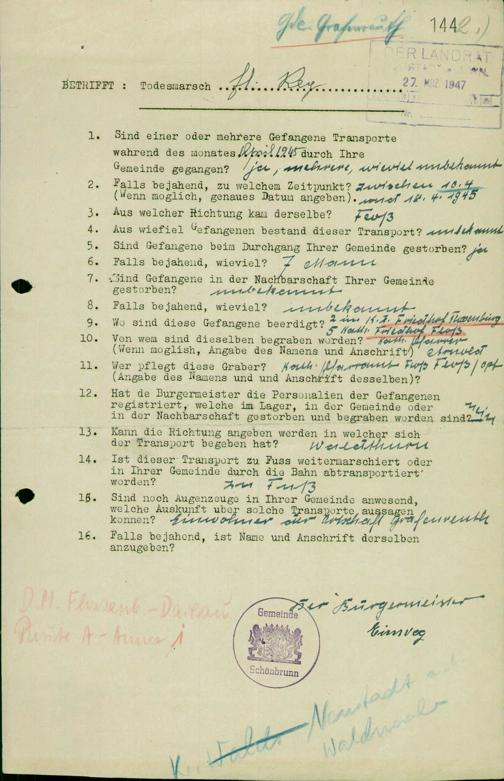 Gde. Grafenreuth
1442.)
DER LANDRAT
27. MRZ 1947
BETRIFFT : Todesmarsch
1. Sind einer oder mehrere Gefangene Transporte
wahrend des monates April 1945 durch Ihre
Gemeinde gegangen? ja, mehrere, wieviel unbekannt
2. Falls bejahend, zu welchem Zeitpunkt? zwischen 10.4
(Wenn moglich, genaues Datum angeben). und 18.4.1945
3. Aus welcher Richtung kam derselbe? Floß
4. Aus wiefiel Gefangenen bestand dieser Transport? unbekannt
5. Sind Gefangene beim Durchgang Ihrer Gemeinde gestorben? ja
6. Falls bejahend, wieviel? 7 Mann
7. Sind Gefangene in der Nachbarschaft Ihrer Gemeinde
gestorben? unbekannt
8. Falls bejahend, wieviel? unbekannt
9. Wo sind diese Gefangene beerdigt? 2 im K.Z. Friedhof Flossenbürg
5 Kath. Friedhof Floß
10. Von wem sind dieselben begraben worden? Kath. Pfarrer
(Wenn moglish, Angabe des Namens und Anschrift)
11. Wer pflegt diese Graber? Kath. Pfarramt Floß Floß/Opf
(Angabe des Namens und und Anschrift desselben)?
12. Hat de Burgermeister die Personalien der Gefangenen
registriert, welche im Lager, in der Gemeinde oder
in der Nachbarschaft gestorben und begraben worden sind?
13. Kann die Richtung angeben werden in welcher sich
der Transport begeben hat? Waldthurn
14. Ist dieser Transport zu Fuss weitermarschiert oder
in Ihrer Gemeinde durch die Bahn abtransportiert
worden? zu Fuß
15. Sind noch Augenzeuge in Ihrer Gemeinde anwesend,
welche Auskunft uber solche Transporte aussagen
konnen? Einwohner der Ortschaft Grafenreuth
16. Falls bejahend, ist Name und Anschrift derselben
anzugeben?
D.M. Flossenb.-Dachau
Route A-Annex 1
Der Bürgermeister
Gemeinde
Schönbrunn
Neustadt a.d.
Waldnaab